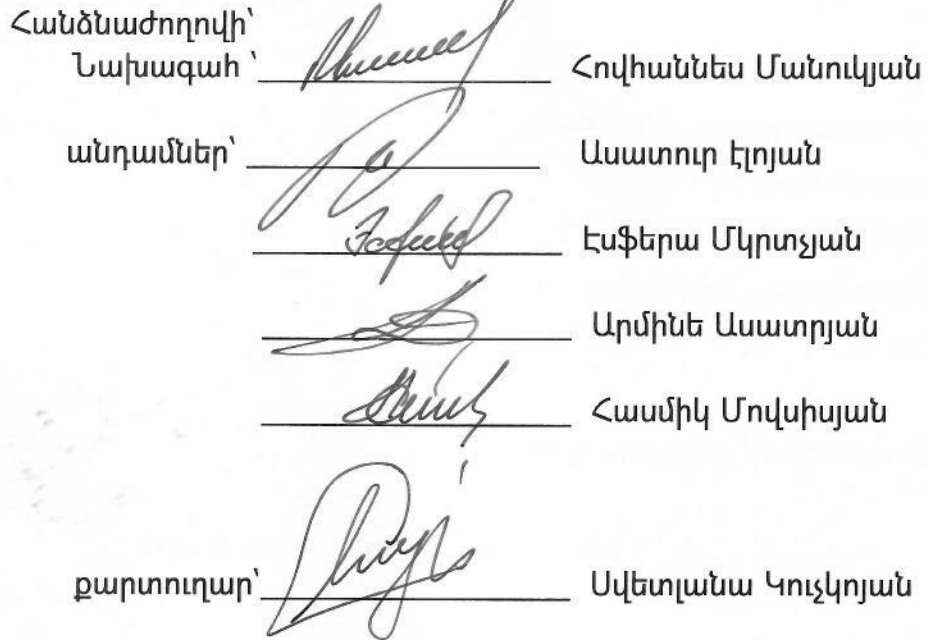 Հանձնաժողովի՝
Նախագահ ՝ Հովհաննես Մանուկյան
անդամներ՝ Ասատուր Էլոյան
Էսֆերա Մկրտչյան
Արմինե Ասատրյան
Հասմիկ Մովսիսյան
քարտուղար՝ Սվետլանա Կուչկոյան